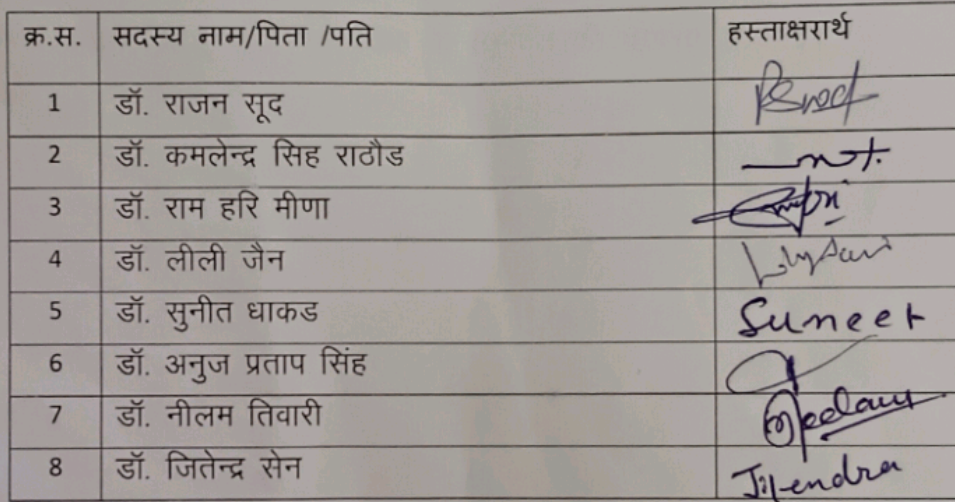 क्र.स. सदस्य नाम/पिता /पति हस्ताक्षरार्थ
1 डॉ. राजन सूद
2 डॉ. कमलेन्द्र सिह राठौड
3 डॉ. राम हरि मीणा
4 डॉ. लीली जैन
5 डॉ. सुनीत धाकड Suneet
6 डॉ. अनुज प्रताप सिंह
7 डॉ. नीलम तिवारी Neelam
8 डॉ. जितेन्द्र सेन Jitendra